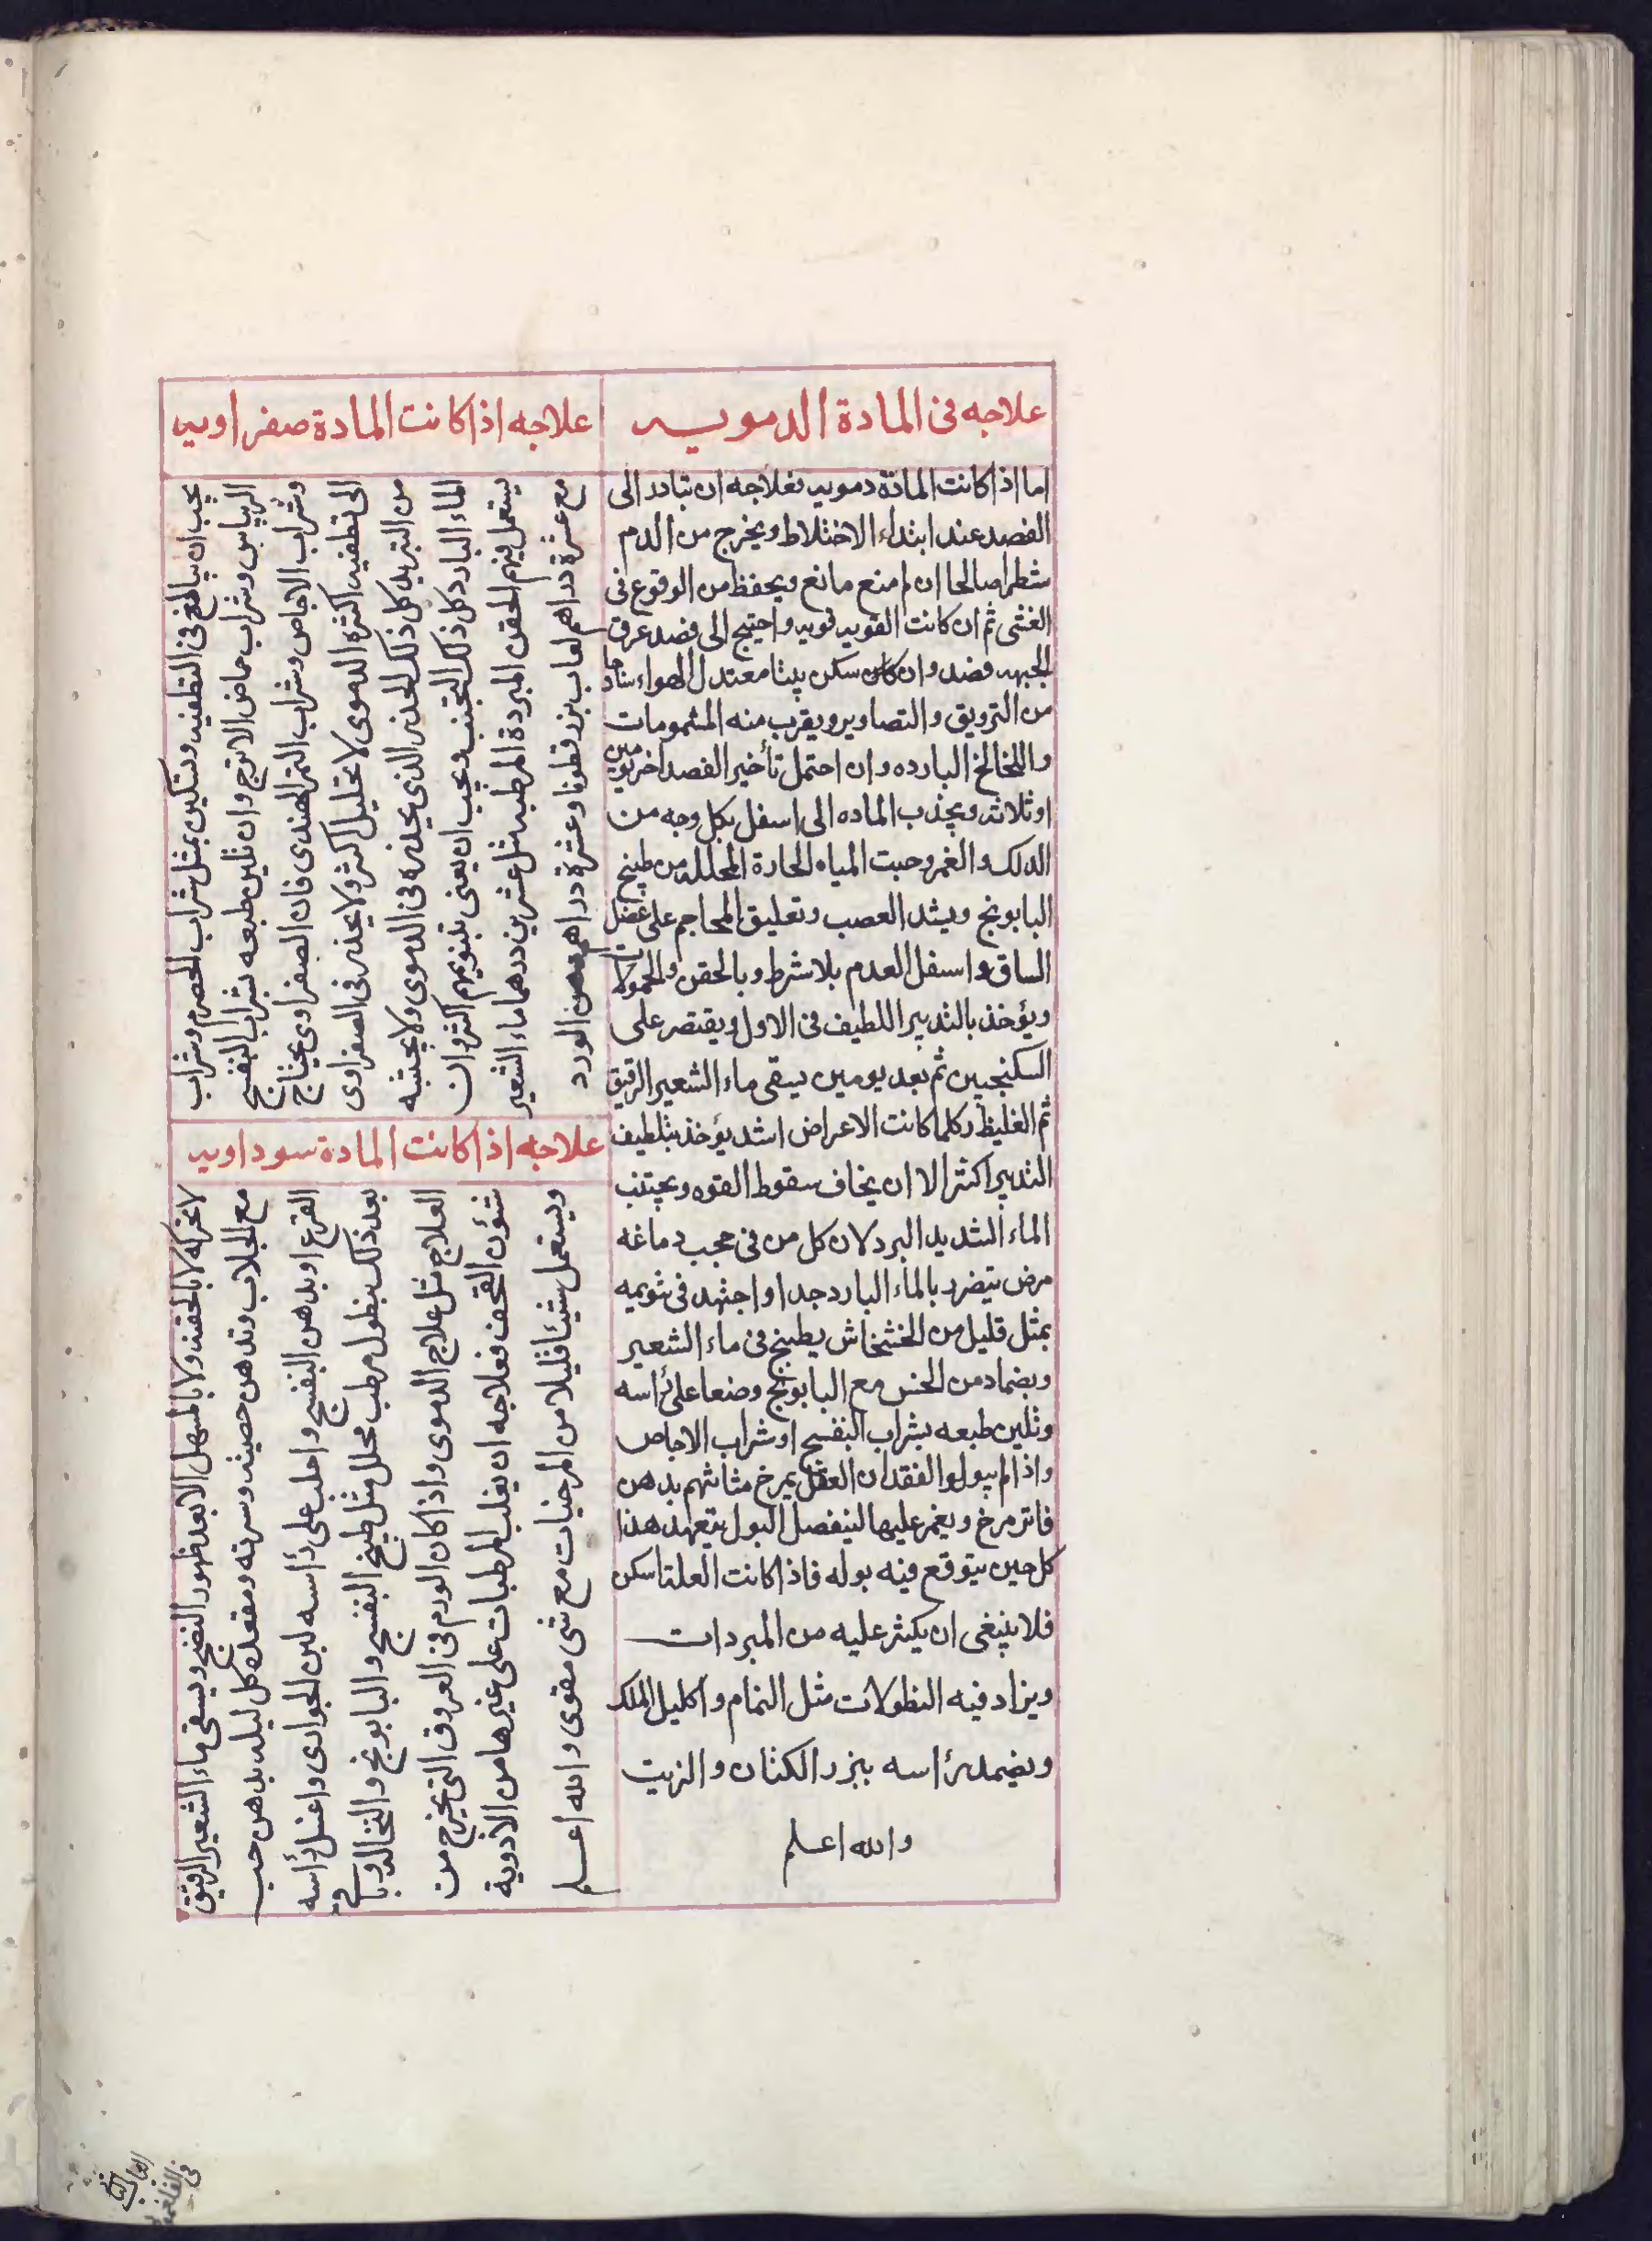 علاجه فى المادة الدمويه
اما اذا كانت المادة دمويه فعلاجه ان تبادر الى
الفصد عند ابتداء الاختلاط ويخرج من الدم
شطرا صالحا ان لم منع مانع ويحفظ من الوقوع فى
الغشى ثم ان كانت القويه قويه واحتيج الى فصد عرق
الجبهه فصد وان كان سكن بيتا معتدل الهواء
من الترويق والتصاوير ويقرب منه المشمومات
واللخالخ البارده وان احتمل تأخير الفصد اخر يومين
او ثلاثه ويجذب الماده الى اسفل بكل وجه من
الدلك والغمر وحبت المياه الحارة المحلله من طبيخ
البابونج ويشد العصب وتعليق المحاجم على عضل
الساق واسفل العدم بلا شرط وبالحقن والحمولات
ويؤخذ بالتدبير اللطيف فى الاول ويقتصر على
السكنجبين ثم بعد يومين يسقى ماء الشعير الرقيق
ثم الغليظ وكلما كانت الاعراض اشد يؤخذ بتلطيف
التدبير اكثر الا ان يخاف سقوط القوه ويجتنب
الماء الشديد البرد لان كل من فى حجب دماغه
مرض يتضرر بالماء البارد جدا واجتهد فى تنويمه
بمثل قليل من الخشخاش يطبخ فى ماء الشعير
وبضماد من الخس مع البابونج وضعا على رأسه
وتلين طبعه بشراب البنفسج او شراب الاجاص
واذا لم يبولوا لفقدان العقل يمرخ مثانتهم بدهن
فاتر مرخ ويغمر عليها لينفصل البول يتعهد هذا
كل حين يتوقع فيه بوله فاذا كانت العلتا سكن
فلا ينبغى ان يكثر عليه من المبردات
ويزاد فيه النطولات مثل النمام واكليل الملك
ويضمد رأسه ببزر الكتان والزيت
والله اعلم
علاجه اذا كانت المادة صفراويه
يجب ان يبالغ فى التطفيه وتسكين بمثل شراب الحصرم وشراب
الريباس وشراب حماض الاترج وان تلين طبعه بشراب البنفسج
وشراب الاجاص وشراب التمر الهندى فان الصفراوى يحتاج
الى تطفيه اكثره الدموى لا تحليل اكثر ولا يحذر فى الصفراوى
من التبريد كل ذلك الحذر الذى يحذره فى الدموى ولا يجنبه
الماء البارد كل ذلك التجنب ويجب ان يعنى بتنويمهم اكثر وان
يستعمل فيهم الحقن المبردة المرطبه مثل عشرين درهما ماء الشعير
مع عشرة دراهم لعاب بزر قطونا وعشرة دراهم دهن الورد
علاجه اذا كانت المادة سوداويه
لا تحركه لا بالحقنه ولا بالمسهل الا بعد ظهور النضج ويسقى ماء الشعير الرقيق
مع الجلاب وتدهن خصيته وسرته ومقعدته كل ليله بدهن حب
القرع او بدهن البنفسج واحلب على رأسه لبن الجوارى واغسل رأسه
بعد ذلك بنطول مرطب محلل مثل طبيخ البنفسج والبابونج والنخاله وباقى
العلاج مثل علاج الدموى واذا كان الورم فى العروق التى يخرج من
شؤن القحف فعلاجه ان يغلب المرطبات على غيرها من الأدوية
ويستعمل شيئا قليلا من المرخيات مع شى مقوى والله اعلم